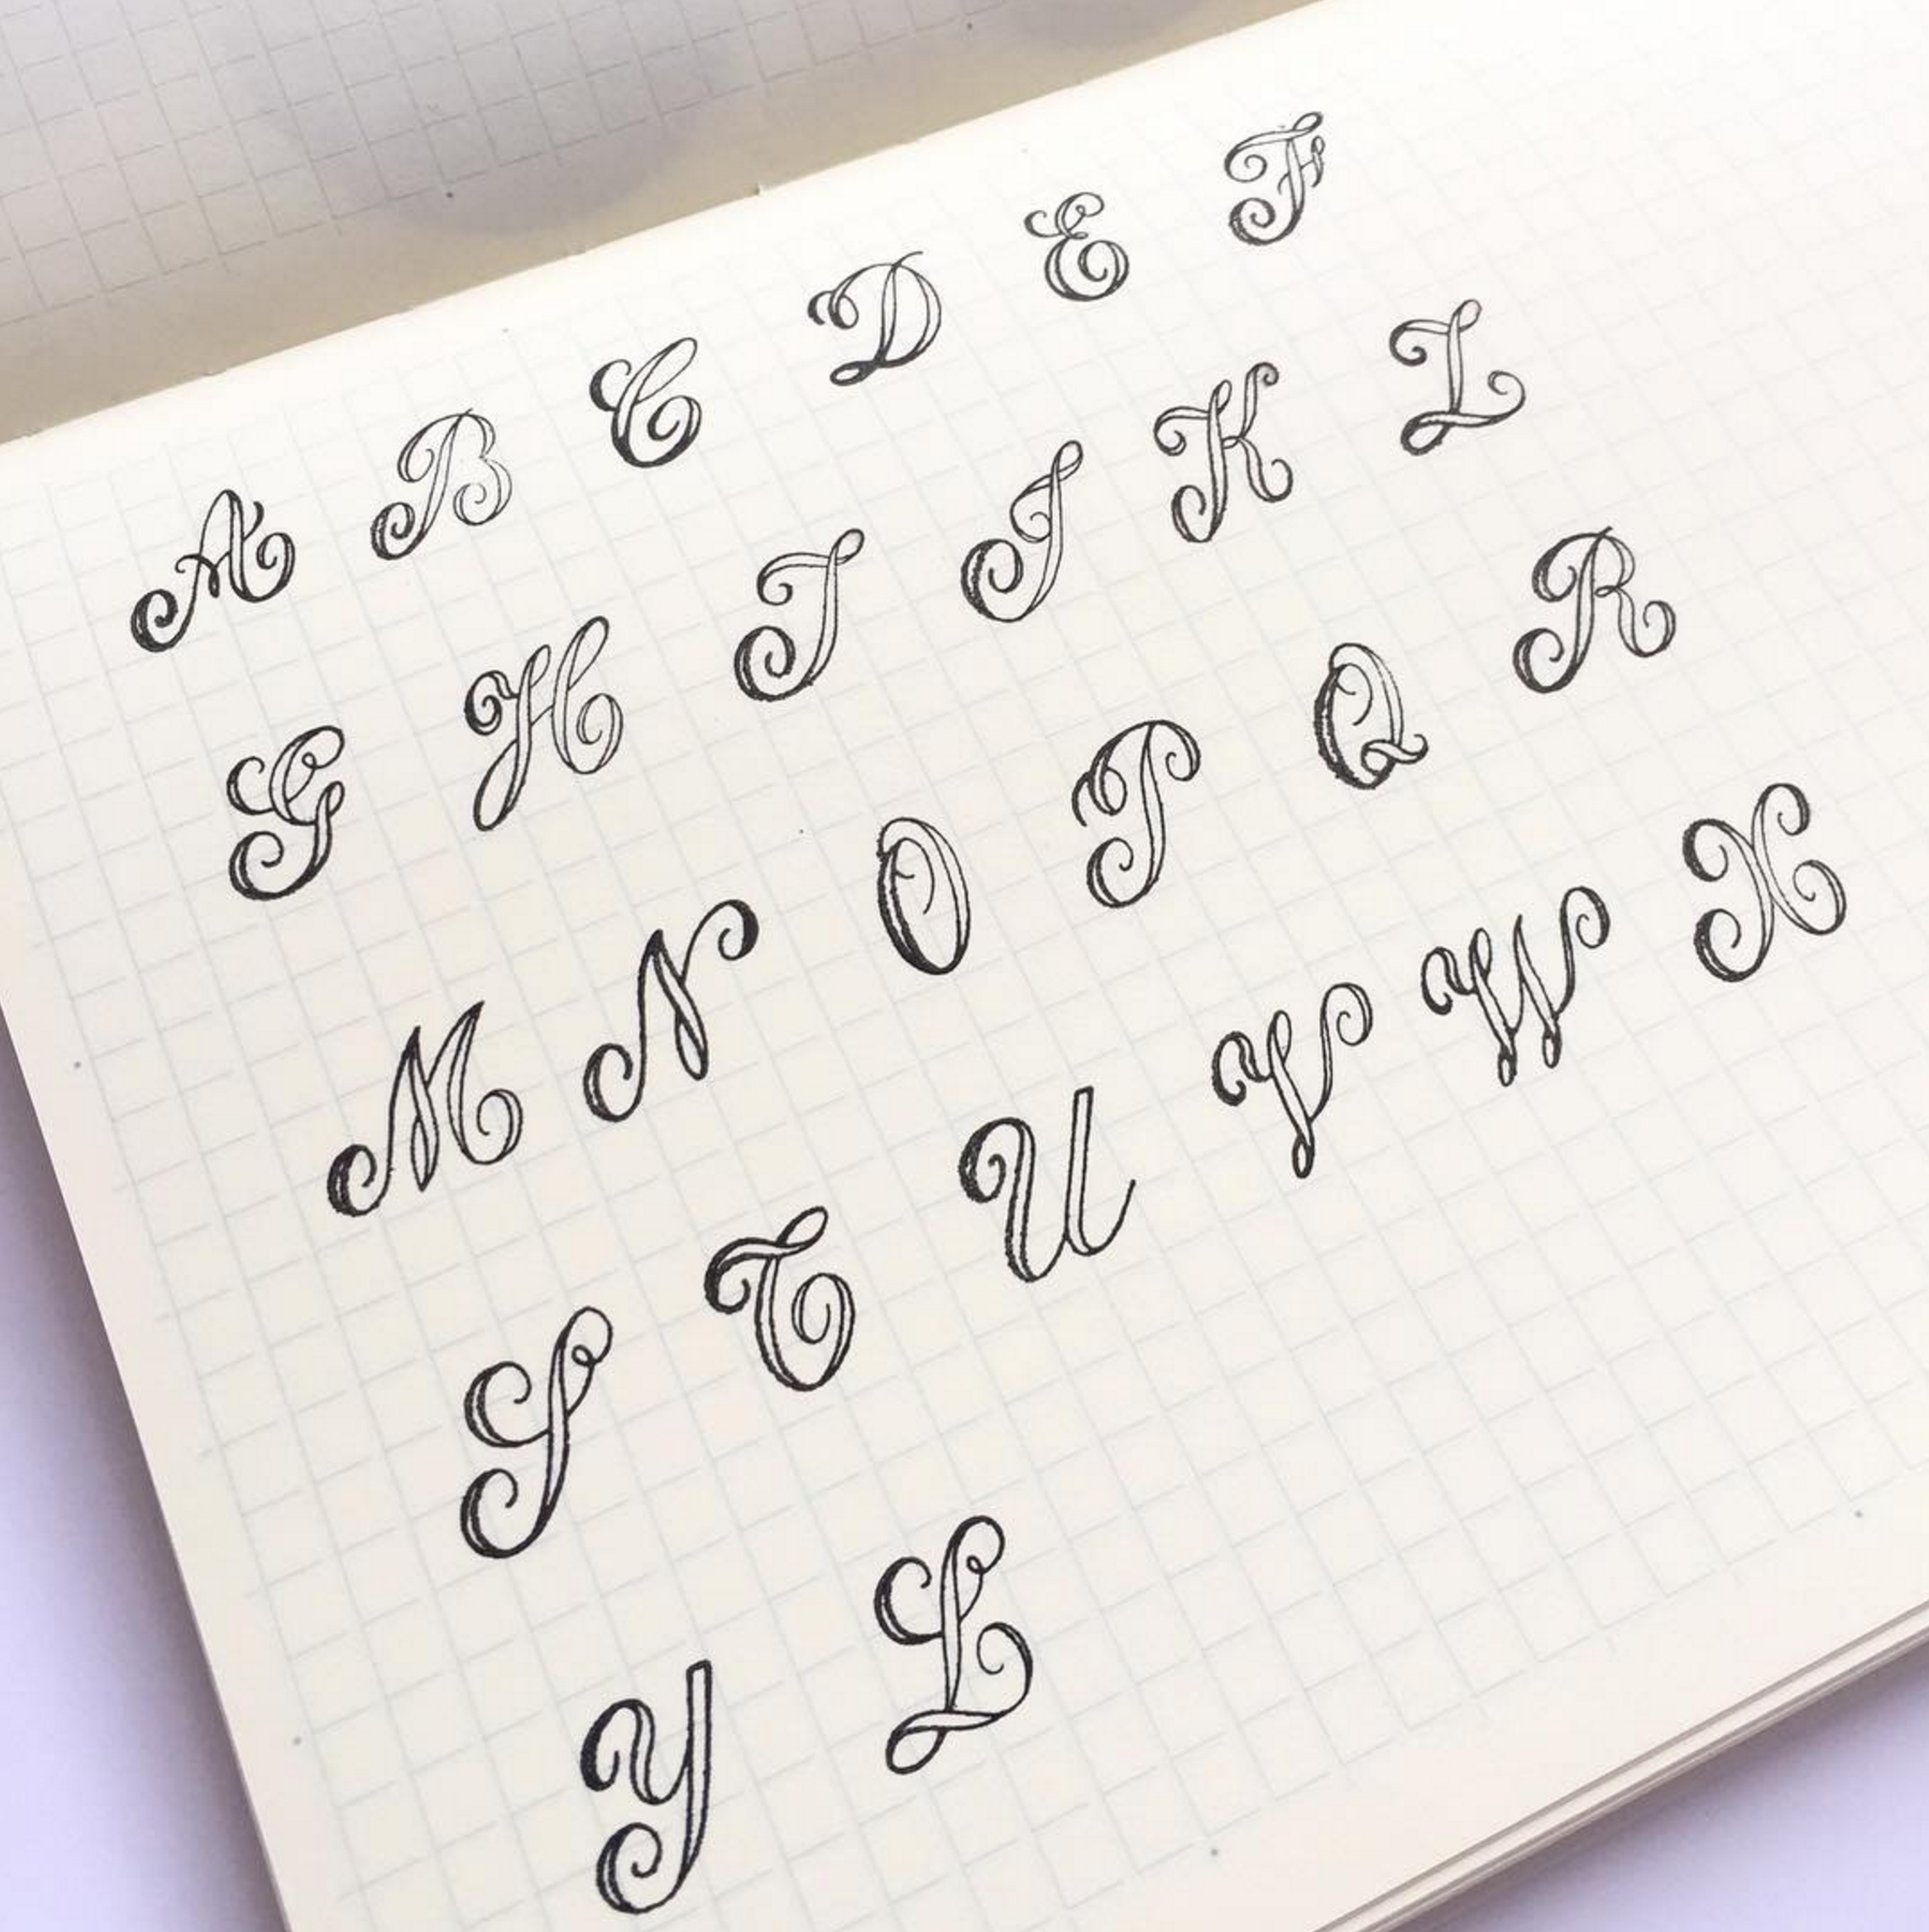 A B C D E F
G H I J K L
M N O P Q R
S T U V W X
Y L